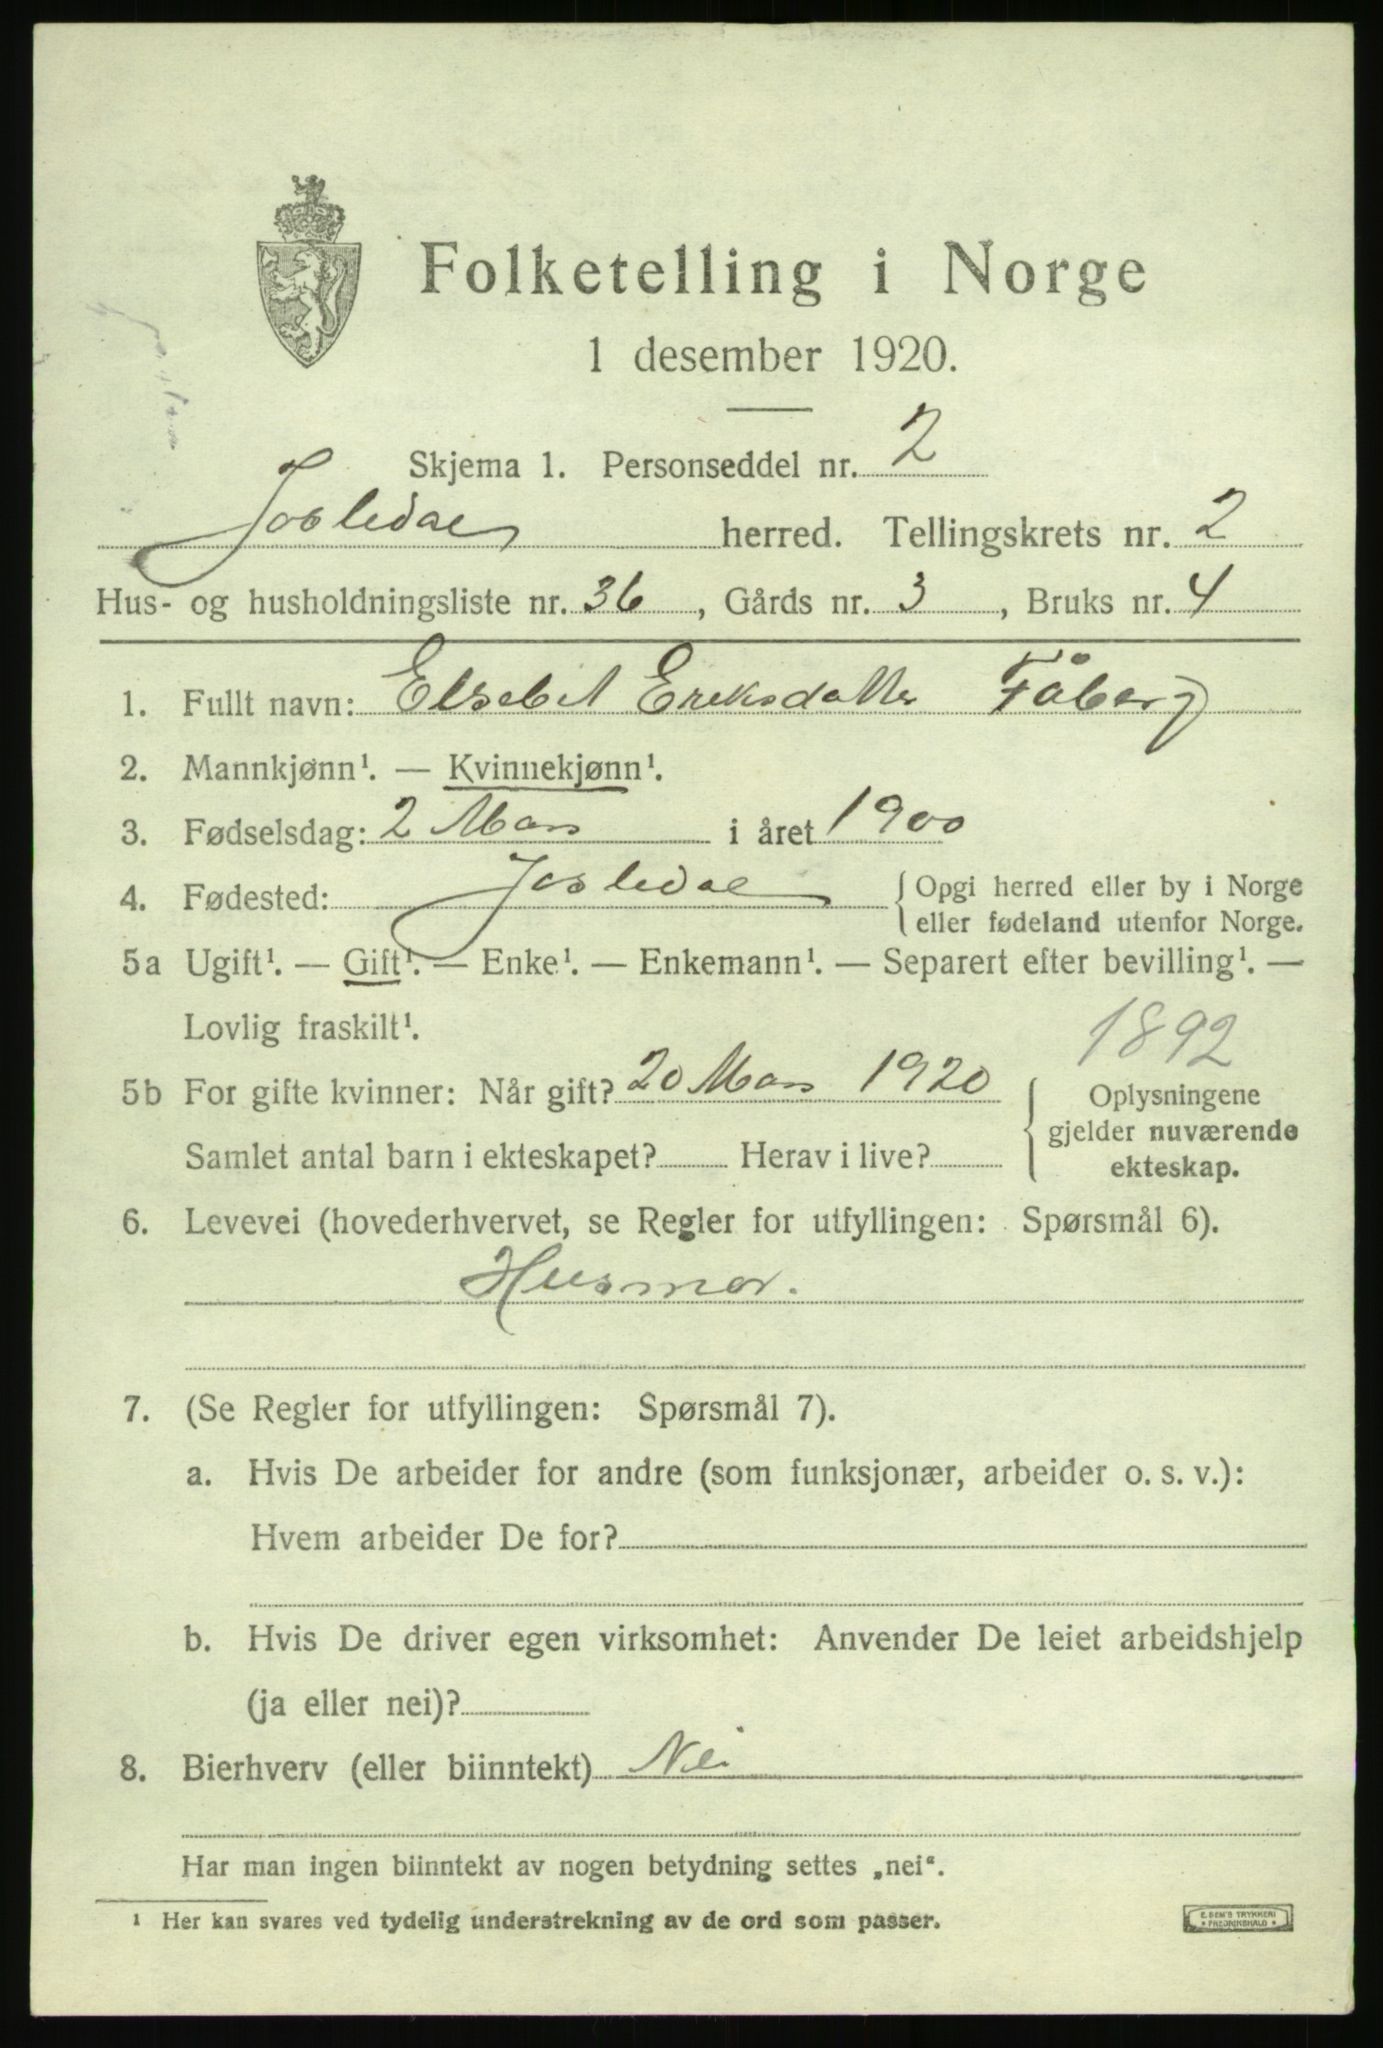 Folketelling i Norge
1 desember 1920.
Skjema 1. Personseddel nr. 2
Jostedal herred. Tellingskrets nr. 2
Hus- og husholdningsliste nr. 36, Gårds nr. 3, Bruks nr. 4
1. Fullt navn: Elsebet Eriksdatter Fåberg
2. Mannkjønn¹. — Kvinnekjønn¹.
3. Fødselsdag: 2 Mars i året 1900
4. Fødested: Jostedal { Opgi herred eller by i Norge
eller fødeland utenfor Norge.
5a Ugift¹. — Gift¹. — Enke¹. — Enkemann¹. — Separert efter bevilling¹. —
Lovlig fraskilt¹.
1892
5b For gifte kvinner: Når gift? 20 Mars 1920
Samlet antal barn i ekteskapet? Herav i live?
Oplysningene
gjelder nuværende
ekteskap.
6. Levevei (hovederhvervet, se Regler for utfyllingen: Spørsmål 6).
Husmor.
7. (Se Regler for utfyllingen: Spørsmål 7).
a. Hvis De arbeider for andre (som funksjonær, arbeider o. s. v.):
Hvem arbeider De for?
b. Hvis De driver egen virksomhet: Anvender De leiet arbeidshjelp
(ja eller nei)?
8. Bierhverv (eller biinntekt) Nei
Har man ingen biinntekt av nogen betydning settes „nei“.
¹ Her kan svares ved tydelig understrekning av de ord som passer.
E. SEM'S TRYKKERI
* FREDRIKSHALD *